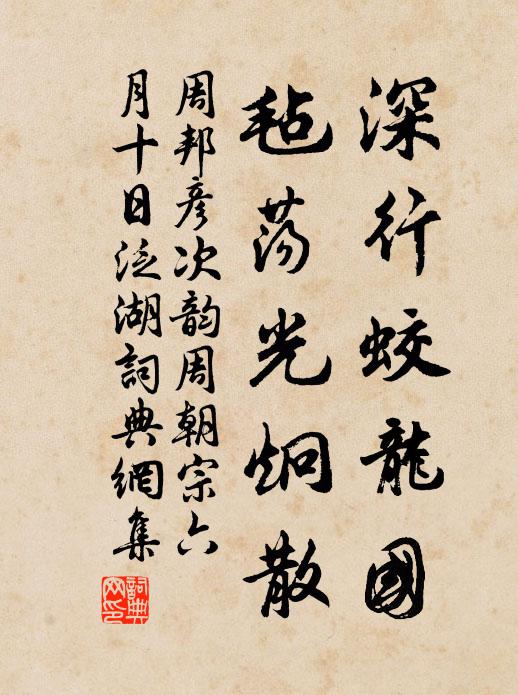 深行蛟龍國
毡荡光炯散
周邦彦次韵周朝宗六
月十日泛湖詞典網集
詞典
网印